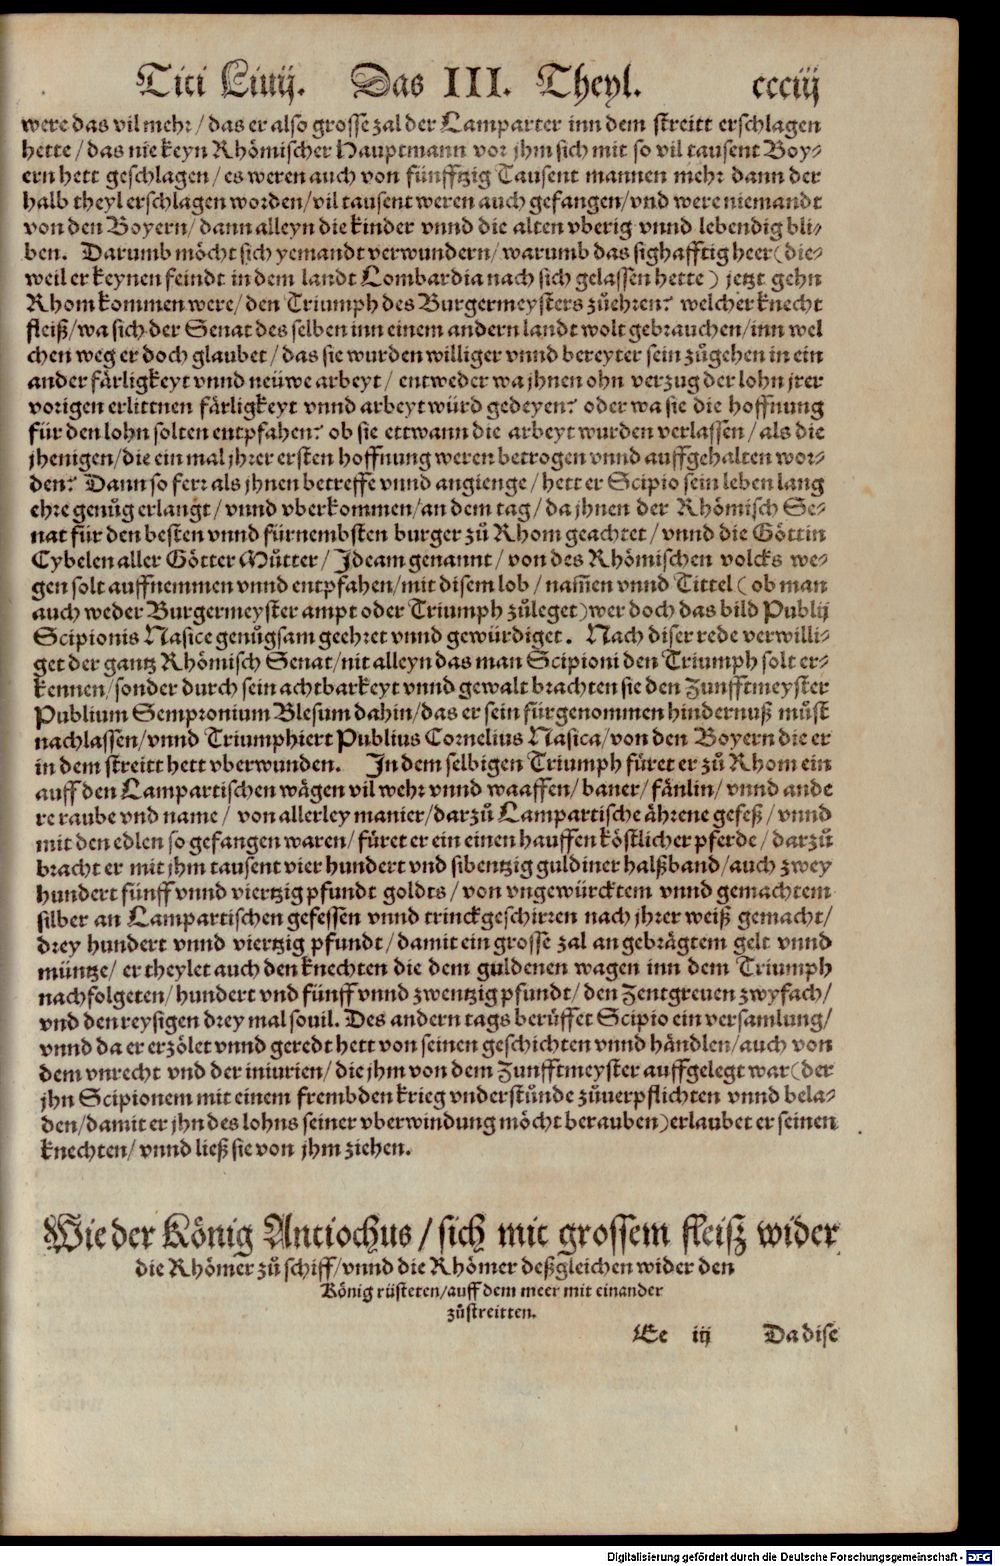 Titi Liuij. Das III. Theyl. ccciij
were das vil mehr/das er also grosse zal der Lamparter inn dem streitt erschlagen
hette/das nie keyn Rhömischer Hauptmann vor jhm sich mit so vil tausent Boy⸗
ern hett geschlagen/es weren auch von fünfftzig Tausent mannen mehr dann der
halb theyl erschlagen worden/vil tausent weren auch gefangen/vnd were niemandt
von den Boyern/dann alleyn die kinder vnnd die alten vberig vnnd lebendig bli⸗
ben. Darumb möcht sich yemandt verwundern/warumb das sighafftig heer(die⸗
weil er keynen feindt in dem landt Lombardia nach sich gelassen hette) jetzt gehn
Rhom kommen were/den Triumph des Burgermeysters zůehren? welcher knecht
fleiß/wa sich der Senat des selben inn einem andern landt wolt gebrauchen/inn wel
chen weg er doch glaubet/das sie wurden williger vnnd bereyter sein zůgehen in ein
ander färligkeyt vnnd neüwe arbeyt/entweder wa jhnen ohn verzug der lohn jrer
vorigen erlittnen färligkeyt vnnd arbeyt würd gedeyen? oder wa sie die hoffnung
für den lohn solten entpfahen? ob sie ettwann die arbeyt wurden verlassen/als die
jhenigen/die ein mal jhrer ersten hoffnung weren betrogen vnnd auffgehalten wor⸗
den? Dann so ferr als jhnen betreffe vnnd angienge/hett er Scipio sein leben lang
ehre genůg erlangt/vnnd vberkommen/an dem tag/da jhnen der Rhömisch Se⸗
nat für den besten vnnd fürnembsten burger zů Rhom geachtet/vnnd die Göttin
Cybelen aller Götter Můtter/Ideam genannt/von des Rhömischen volcks we⸗
gen solt auffnemmen vnnd entpfahen/mit disem lob/nam̃en vnnd Tittel(ob man
auch weder Burgermeyster ampt oder Triumph zůleget)wer doch das bild Publij
Scipionis Nasice genůgsam geehret vnnd gewürdiget. Nach diser rede verwilli⸗
get der gantz Rhömisch Senat/nit alleyn das man Scipioni den Triumph solt er⸗
kennen/sonder durch sein achtbarkeyt vnnd gewalt brachten sie den Zunfftmeyster
Publium Sempronium Blesum dahin/das er sein fürgenommen hindernuß můst
nachlassen/vnnd Triumphiert Publius Cornelius Nasica/von den Boyern die er
in dem streitt hett vberwunden. In dem selbigen Triumph füret er zů Rhom ein
auff den Lampartischen wägen vil wehr vnnd waaffen/baner/fänlin/vnnd ande
re raube vnd name/von allerley manier/darzů Lampartische ährene gefeß/vnnd
mit den edlen so gefangen waren/füret er ein einen hauffen köstlicher pferde/darzů
bracht er mit jhm tausent vier hundert vnd sibentzig guldiner halßband/auch zwey
hundert fünff vnnd viertzig pfundt goldts/von vngewürcktem vnnd gemachtem
silber an Lampartischen gefessen vnnd trinckgeschirren nach jhrer weiß gemacht/
drey hundert vnnd viertzig pfundt/damit ein grosse zal an gebrägtem gelt vnnd
müntze/er theylet auch den knechten die dem guldenen wagen inn dem Triumph
nachfolgeten/hundert vnd fünff vnnd zwentzig pfundt/den Zentgreuen zwyfach/
vnd den reysigen drey mal souil. Des andern tags berüffet Scipio ein versamlung/
vnnd da er erzölet vnnd geredt hett von seinen geschichten vnnd händlen/auch von
dem vnrecht vnd der iniurien/die jhm von dem Zunfftmeyster auffgelegt war(der
jhn Scipionem mit einem frembden krieg vnderstůnde zůuerpflichten vnnd bela⸗
den/damit er jhn des lohns seiner vberwindung möcht berauben)erlaubet er seinen
knechten/vnnd ließ sie von jhm ziehen.
Wie der König Antiochus/sich mit grossem fleisz wider
die Rhömer zů schiff/vnnd die Rhömer deßgleichen wider den
König rüsteten/auff dem meer mit einander
zůstreitten.
Ee iij Da dise
Digitalisierung gefördert durch die Deutsche Forschungsgemeinschaft - DFG